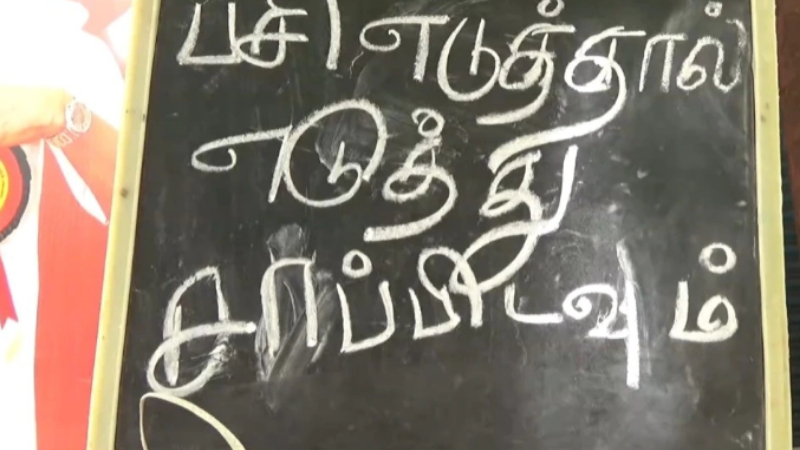 பசி எடுத்தால்
எடுத்து
சாப்பிடவும்